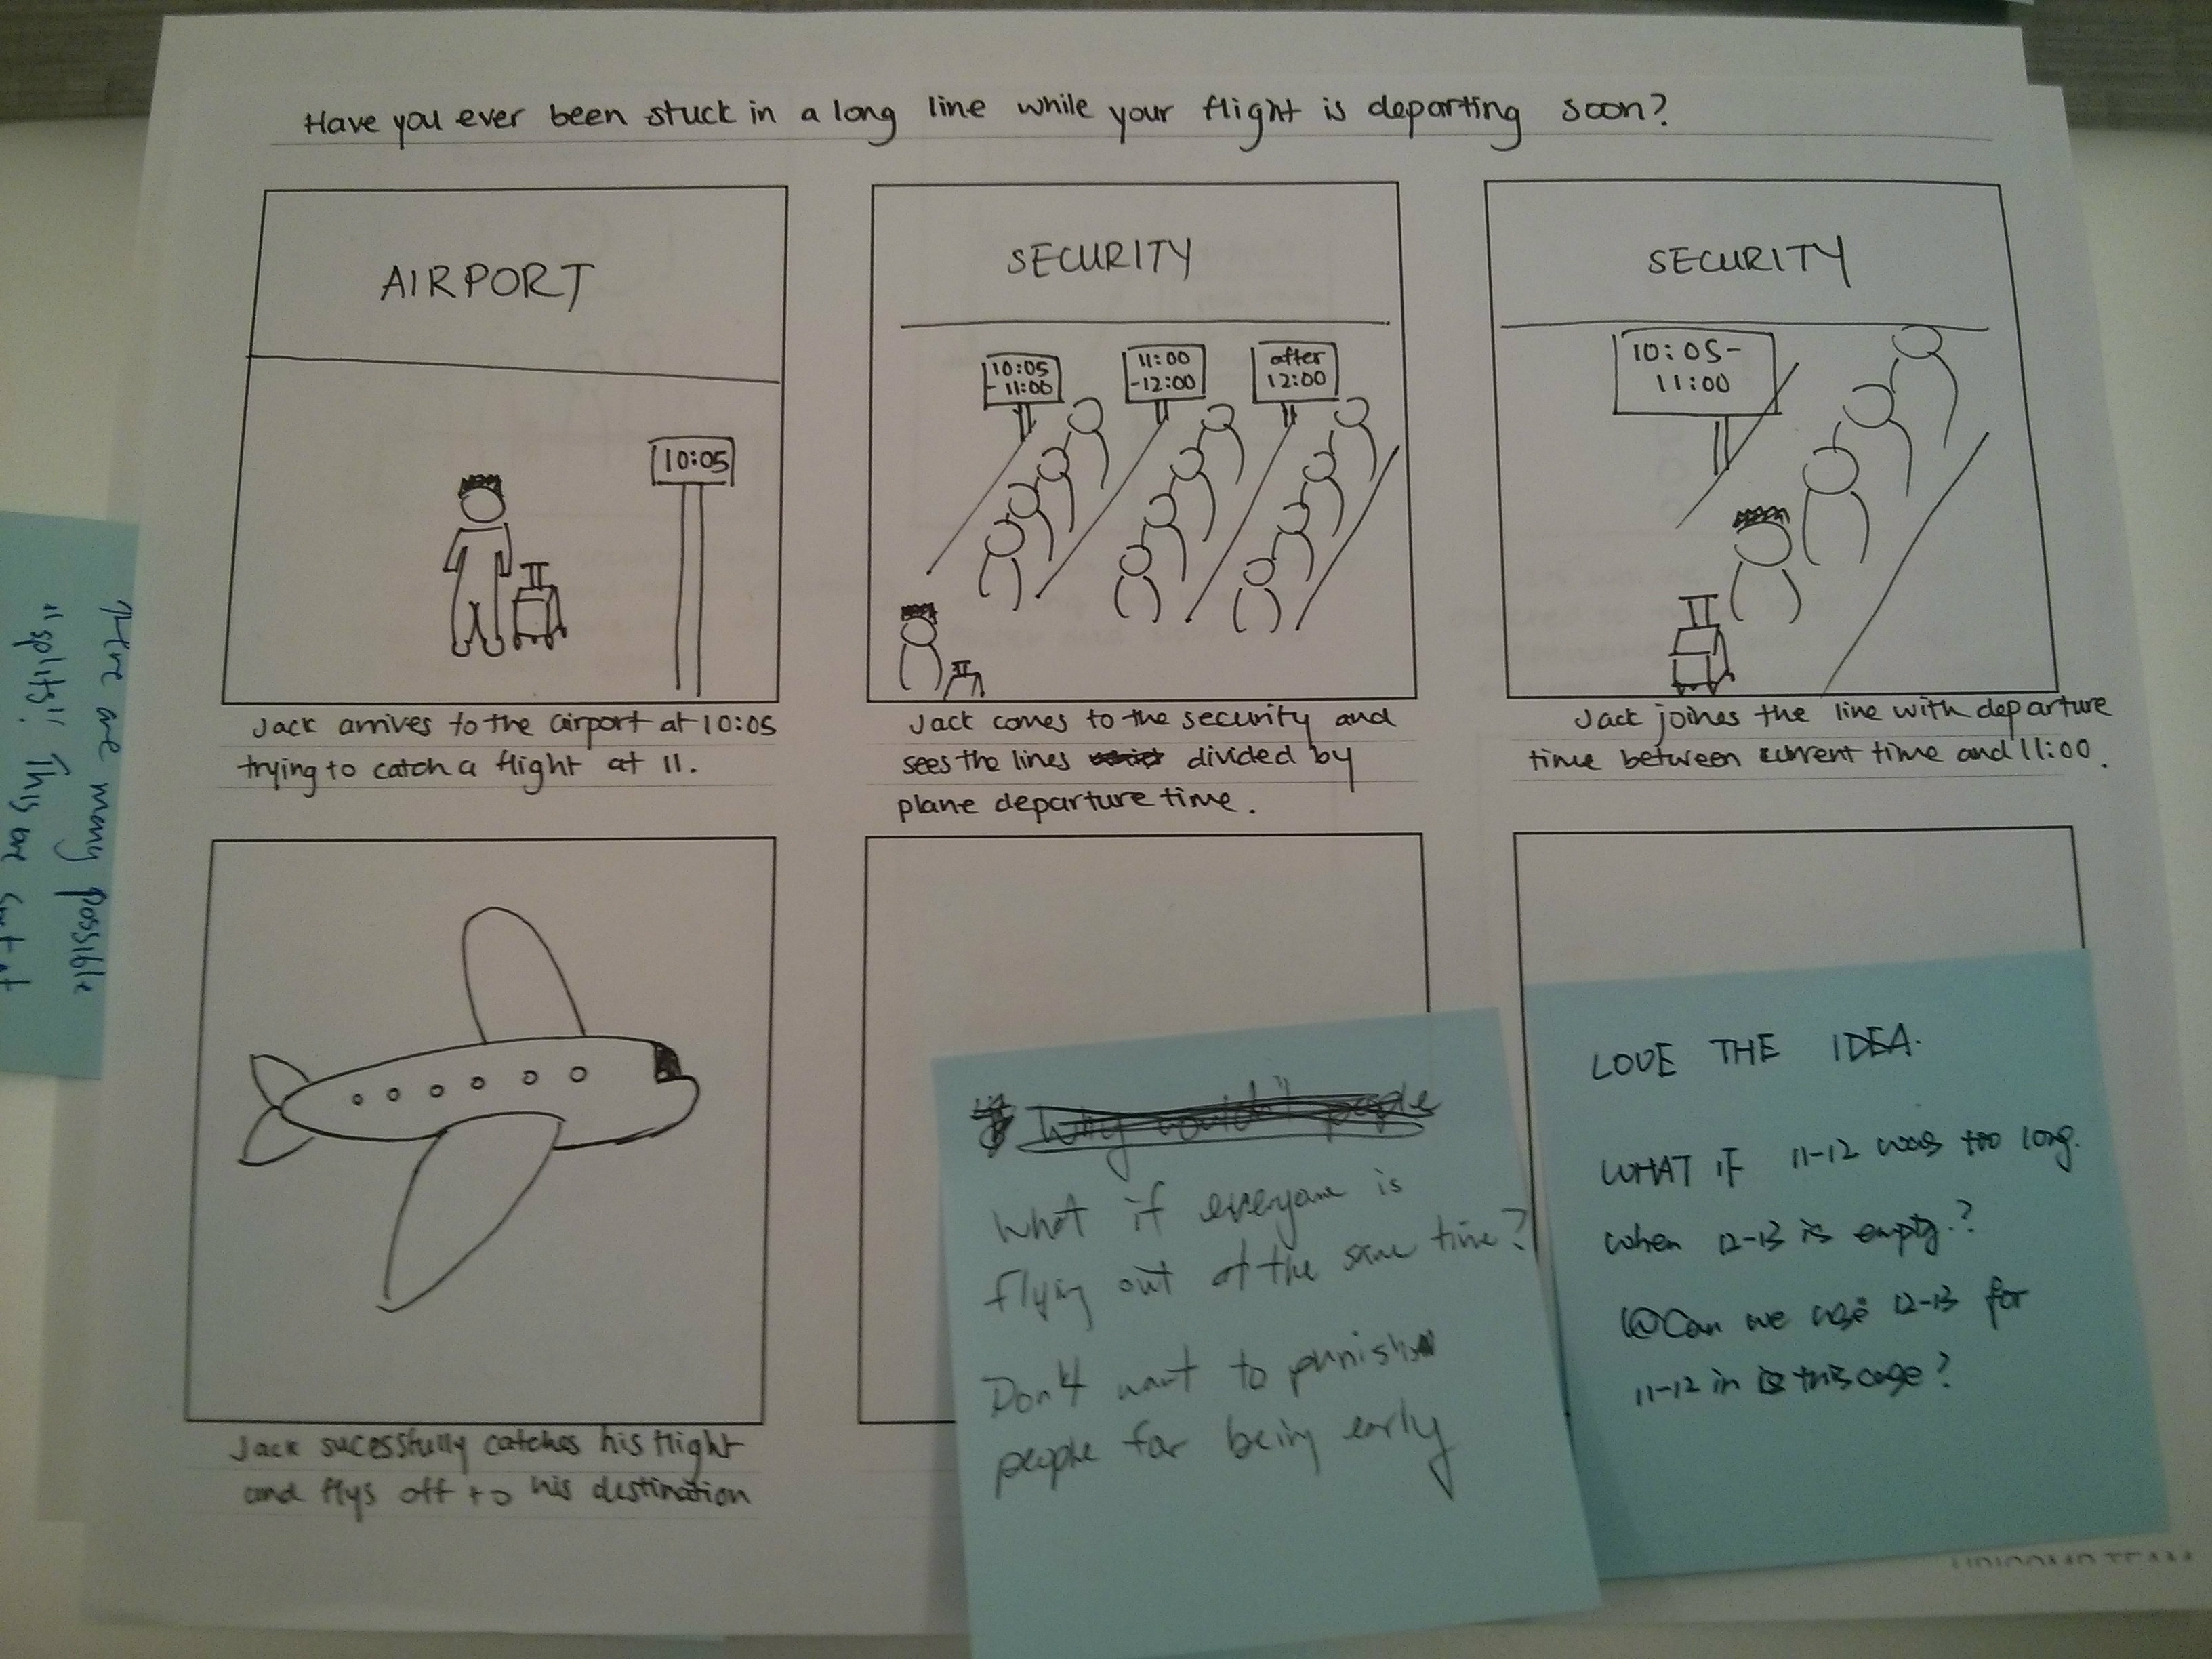 Have you ever been stuck in a long line while your flight is departing soon?
AIRPORT
10:05
Jack arrives to the airport at 10:05
trying to catch a flight at 11.
SECURITY
10:05
-11:00
11:00
-12:00
after
12:00
Jack comes to the security and
sees the lines divided by
plane departure time.
SECURITY
10:05-
11:00
Jack joines the line with departure
time between current time and 11:00.
Jack sucessfully catches his flight
and flys off to his destination
Why wouldn't people
What if everyone is
flying out at the same time?
Don't want to punish
people for being early
LOVE THE IDEA.
WHAT IF 11-12 was too long.
when 12-13 is empty.?
Can we use 12-13 for
11-12 in this case?
There are many possible
"splits". This are